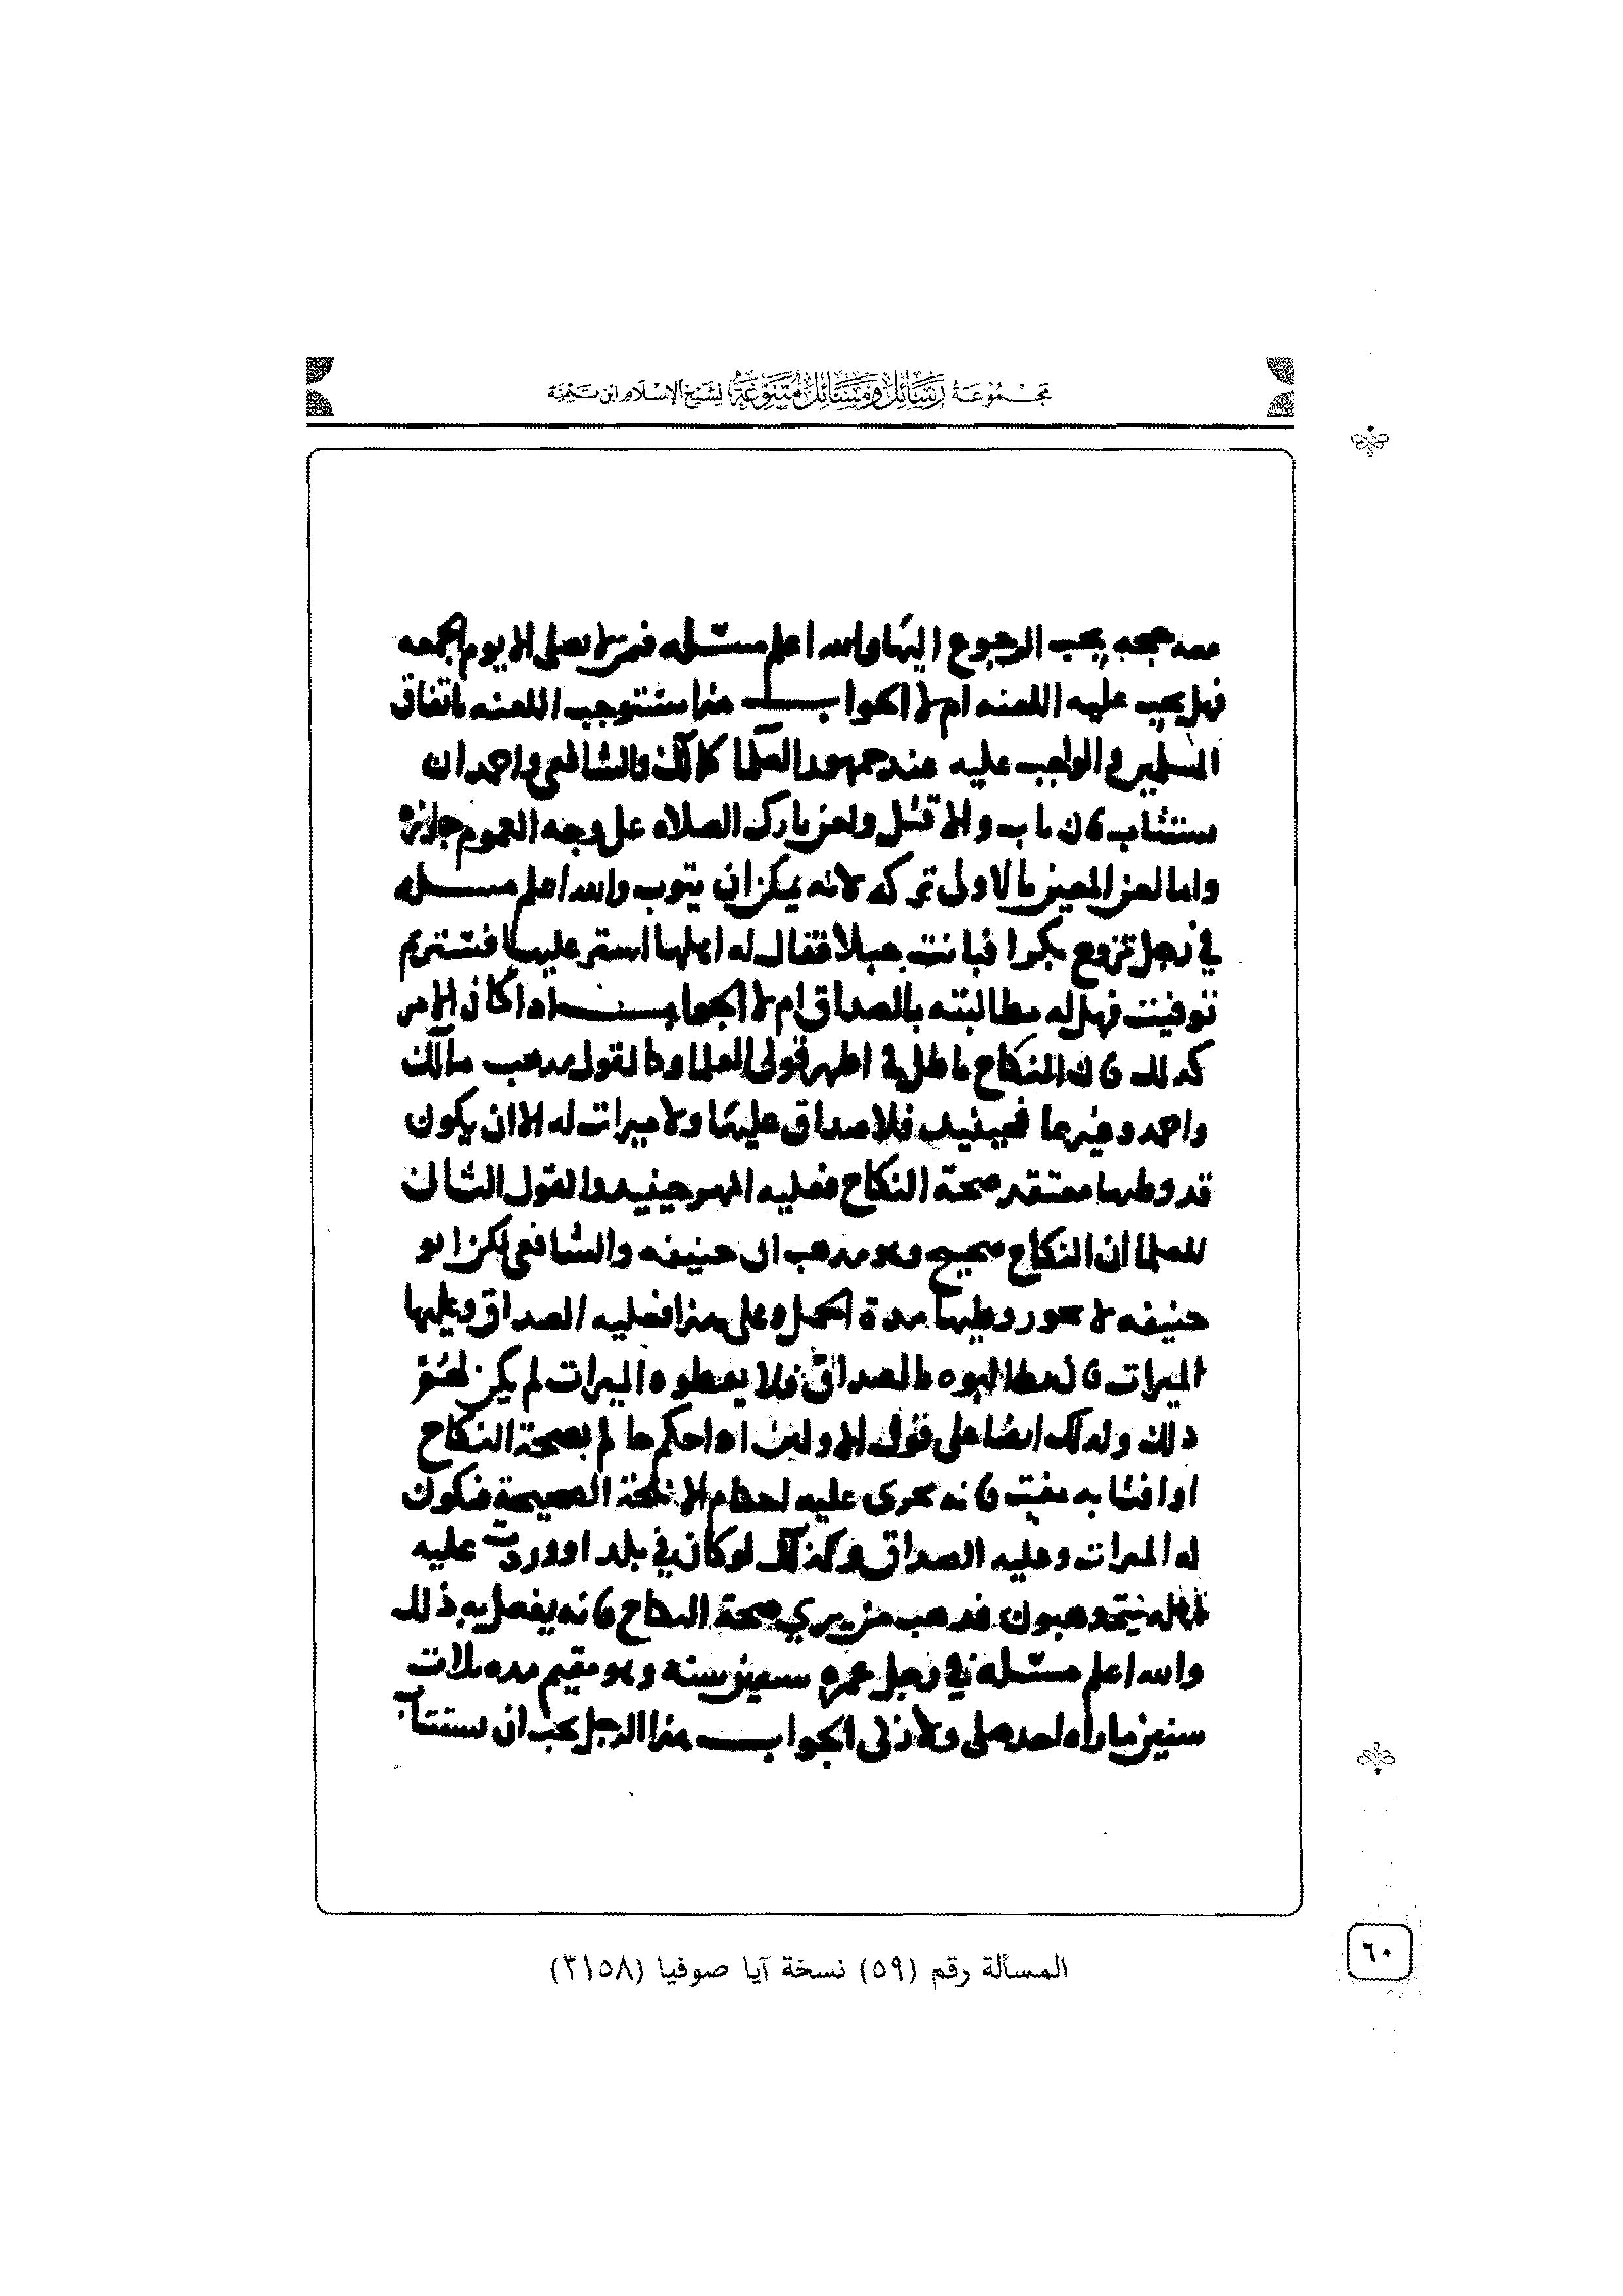 مجموعة رسائل ومسائل متنوعة لشيخ الإسلام ابن تيمية
حجه يجب الرجوع اليها والله اعلم مسئله فمن لا يصلى الا يوم الجمعه
فهل يجب عليه اللعنه ام لا الجواب هذا مستوجب اللعنه باتفاق
المسلمين والواجب عليه عند جمهور العلما كمالك والشافعى واحمد ان
يستتاب فان تاب والا قتل ولعن تارك الصلاه على وجه العموم جائزه
واما لعن المعين فالاولى تركه لانه يمكن ان يتوب والله اعلم مسئله
في رجل تزوج بكرا فبانت حبلا فقال له اهلها استر عليها فستريم
توفيت فهل له مطالبته بالصداق ام لا الجواب اذا كان الامر
كذلك فان النكاح باطل في اظهر قولى العلما وذا القول مذهب مالك
واحمد وغيرهما فحينيذ فلا صداق عليها ولا ميراث له الا ان يكون
قد وطيها معتقد صحة النكاح فعليه المهر حينيذ والقول الثانى
للعلما ان النكاح صحيح وهو مذهب ابى حنيفه والشافعى لكن ابو
حنيفه لا يجوز وطيها مدة الحمل وعلى هذا فعليه الصداق وعليها
الميراث فان طالبوه بالصداق فلا يعطوه الميراث لم يكن لهم
ذلك وكذلك ايضا على قول الاولين اذا حكم حاكم بصحة النكاح
او افتا به مفت فانه يجرى عليه احكام الانكحة الصحيحة فيكون
له الميراث وعليه الصداق وكذلك لو كان في بلد او وردت عليه
مذهب من يري صحة النكاح فانه يفعل به ذلك
والله اعلم مسئله في رجل عمره ستين سنه وهو مقيم مده ثلاث
سنين ما راه احد صلى ولا زكى الجواب هذا الرجل يجب ان يستتاب
المسألة رقم (٥٩) نسخة آيا صوفيا (٣١٥٨)
٦٠